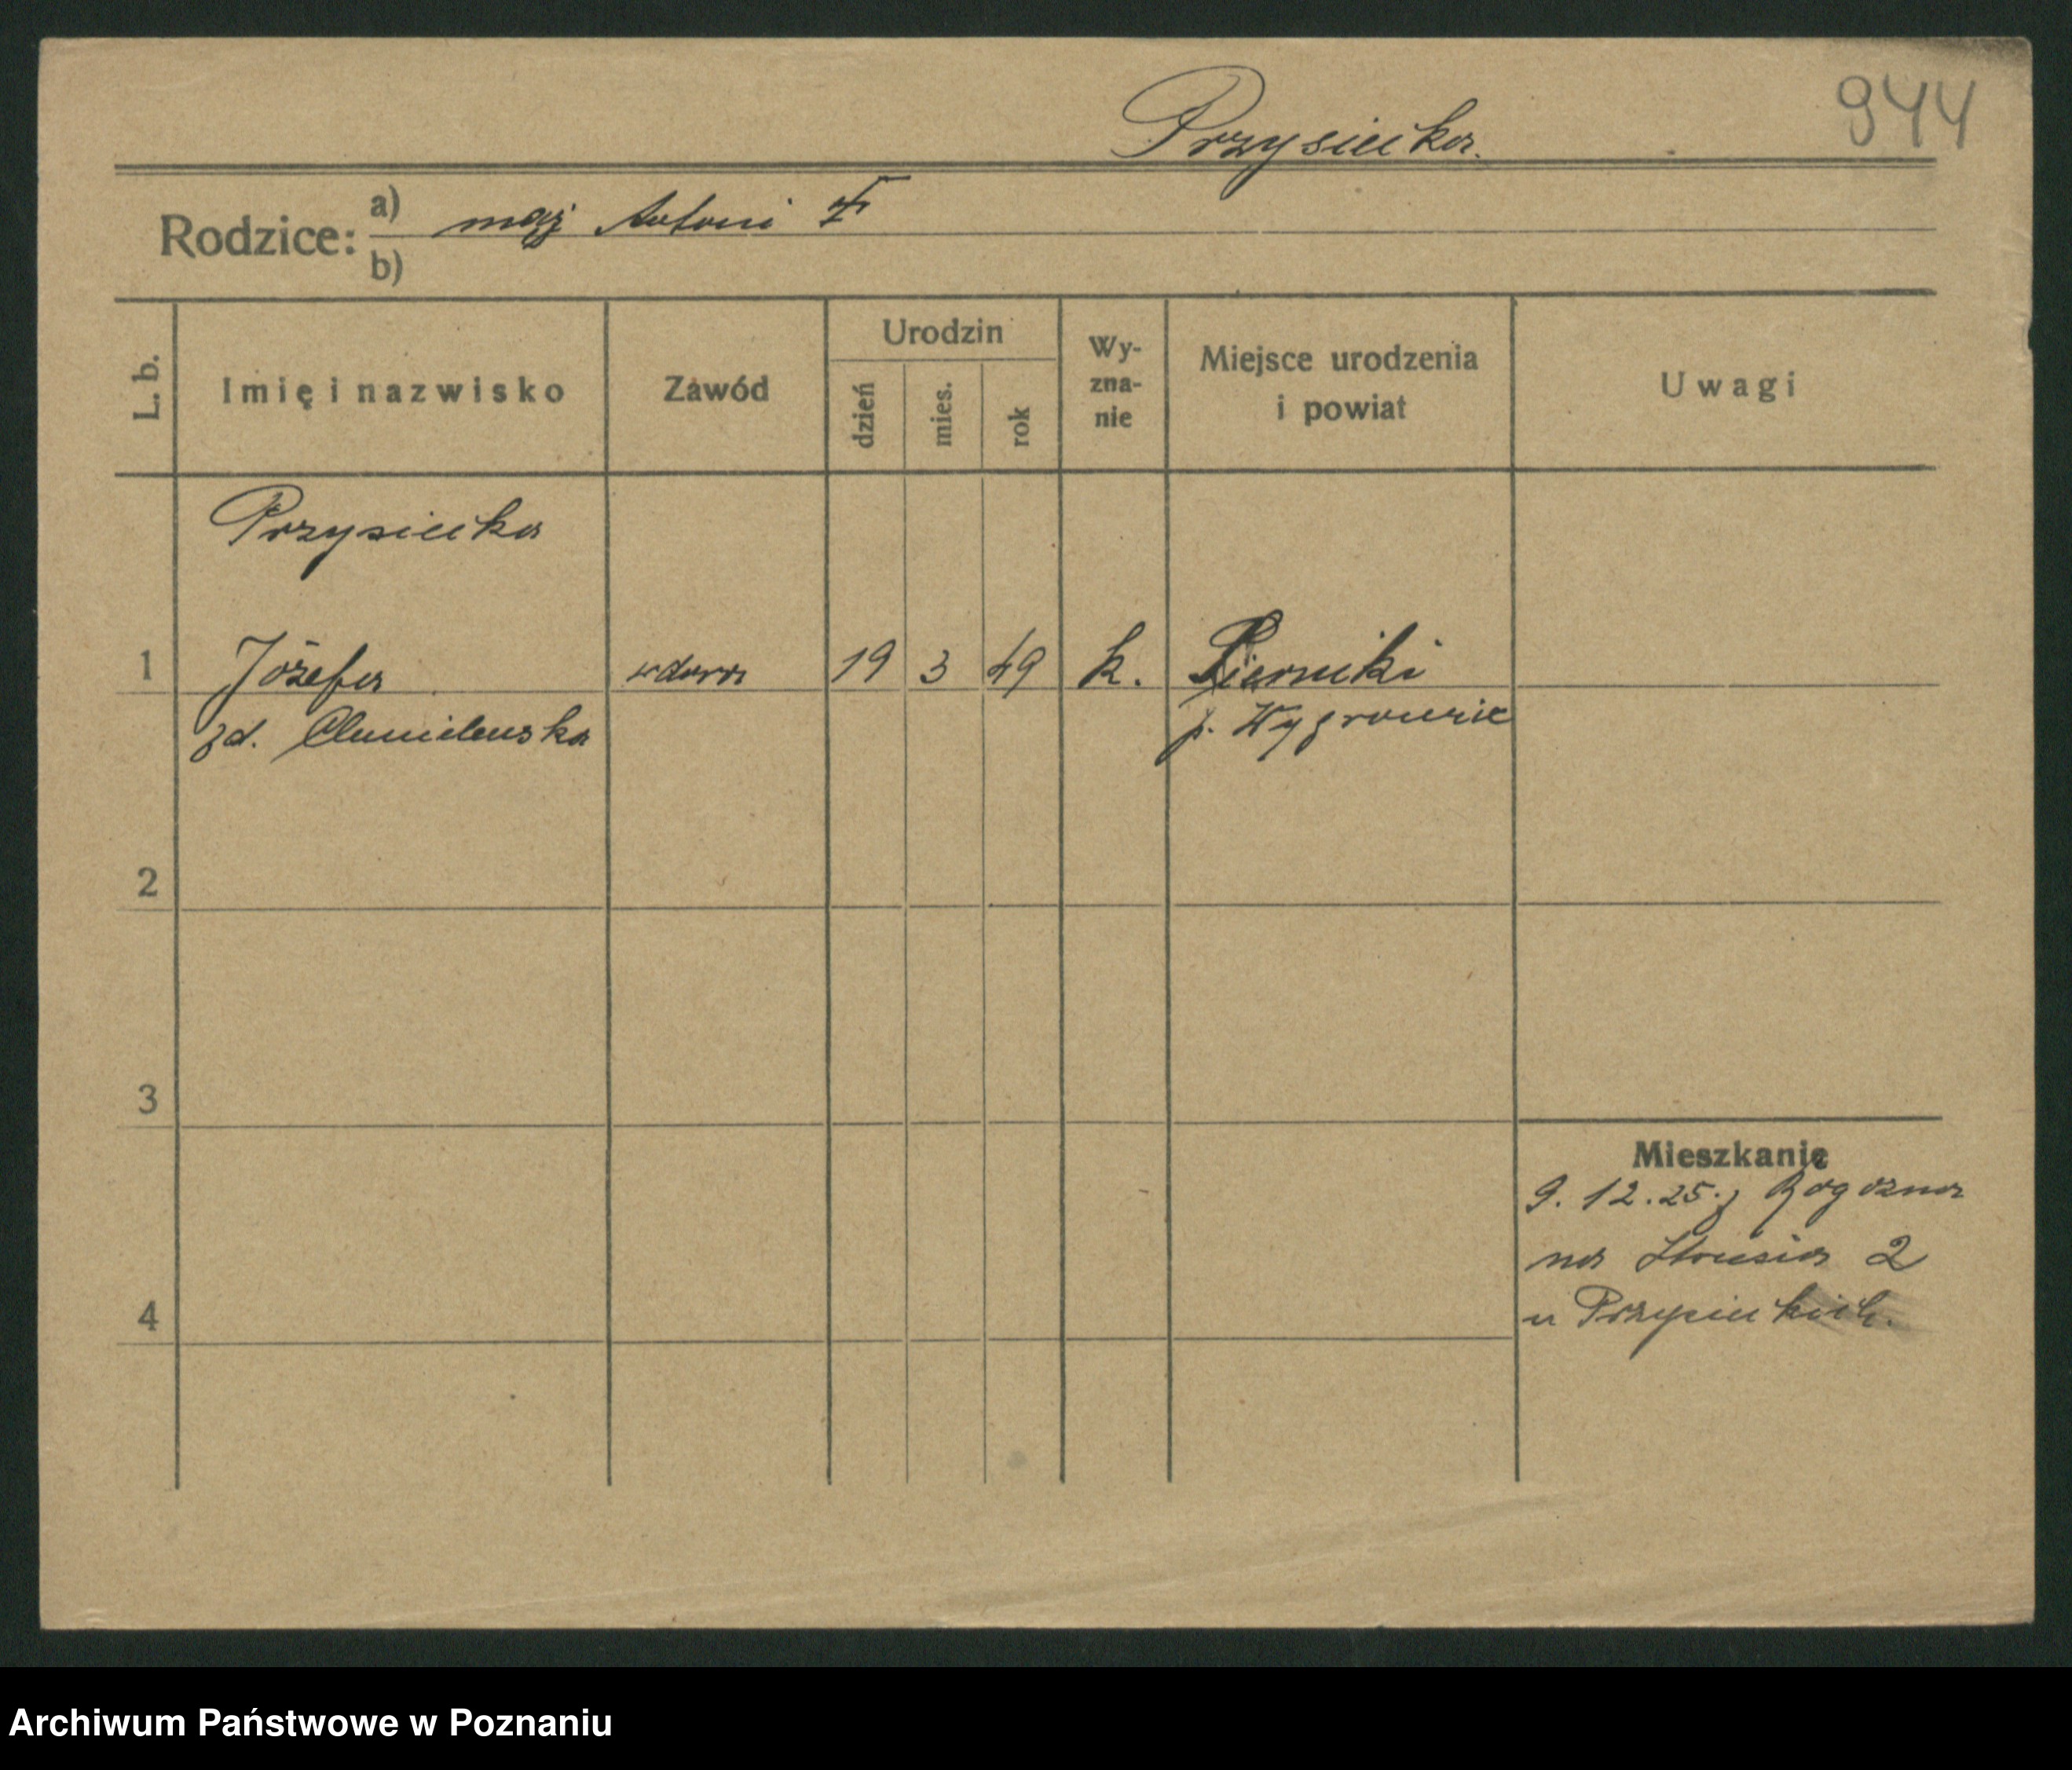 Przysiecka.
944
Rodzice: a) mąż Antoni
b)
L. b.
Imię i nazwisko
Zawód
Urodzin
dzień
mies.
rok
Wy-
zna-
nie
Miejsce urodzenia
i powiat
Uwagi
Przysiecka
1 Józefa wdowa 19 3 49 k. Pierniki
zd. Chmielewska p. Wągrowiec
2
3
Mieszkanie
9. 12. 25. z Rogoźna
na 2
4 u Przysieckich.
Archiwum Państwowe w Poznaniu